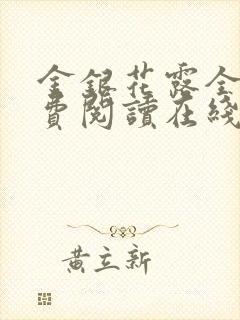 金銀花露全
費閱讀在綫
黃立新